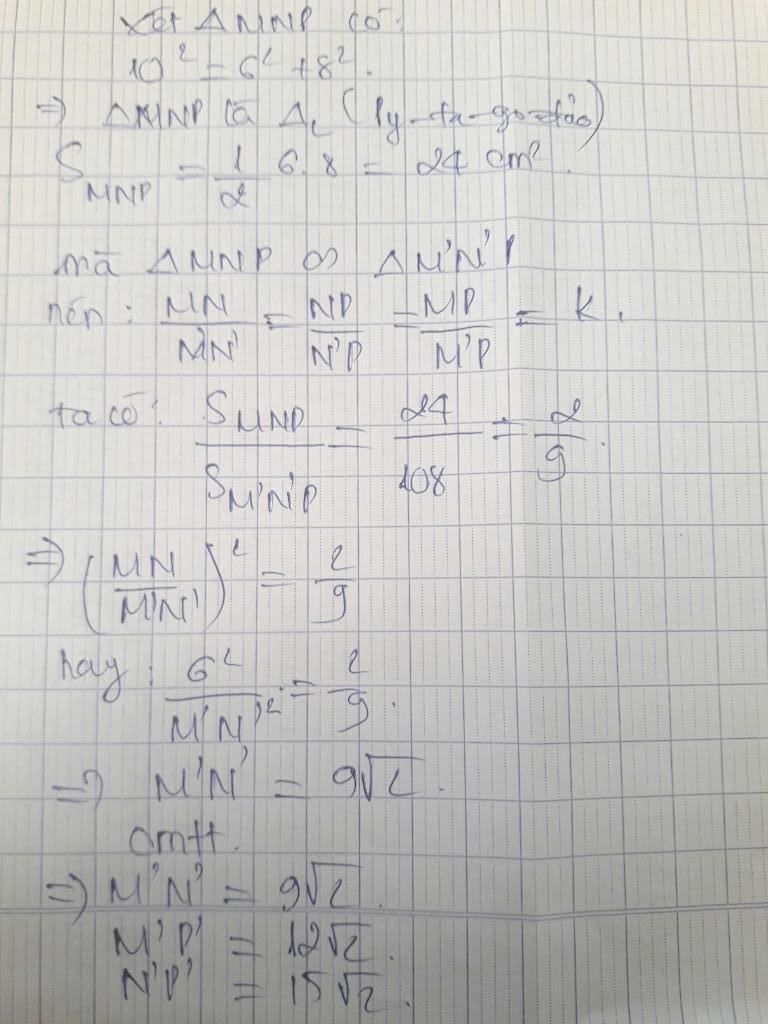 Xét △MNP có:
10² = 6² + 8².
⇒ △MNP là △L (Py-ta-go đảo)
S MNP = 1/2 6.8 = 24 cm².
mà △MNP ∽ △M'N'P
nên: MN/M'N' = NP/N'P = MP/M'P = k.
ta có: S MNP/S M'N'P = 24/108 = 2/9.
⇒ (MN/M'N')² = 2/9
hay: 6²/M'N'² = 2/9.
⇒ M'N' = 9√2.
cmtt.
⇒ M'N' = 9√2.
M'P' = 12√2.
N'P' = 15√2.